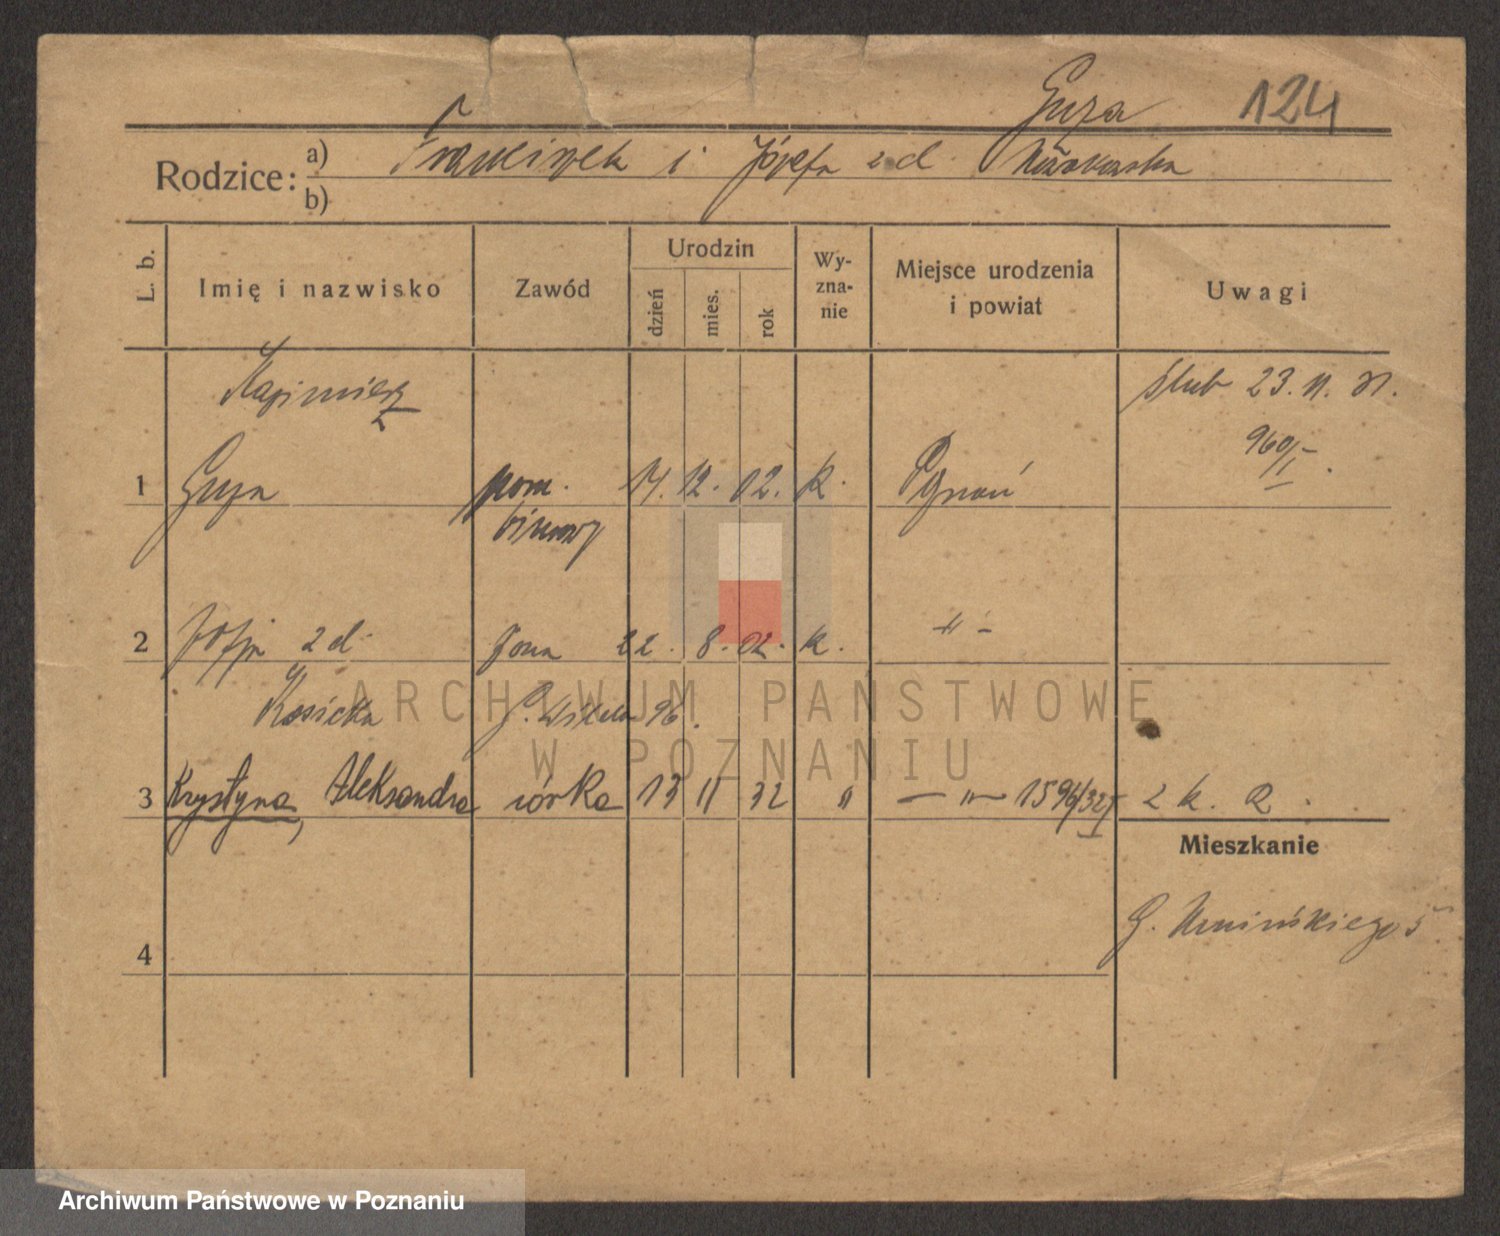 Guza 124
Rodzice: a) Franciszek i Józefa z d.
b)
L. b.
Imię i nazwisko
Zawód
Urodzin
dzień
mies.
rok
Wy-
zna-
nie
Miejsce urodzenia
i powiat
Uwagi
Kazimierz
ślub 23. 11. 31.
960/I
1 Guza pom. 14. 12. 02. k. Poznań
biurowy
2 Zofja z d. żona 22. 8. 02. k. -"-
Kosicka
3 Krystyna, Aleksandra córka 13 11 32 " -"- 1596/32/I 2 k.
Mieszkanie
G. Umińskiego 5
4
ARCHIWUM PAŃSTWOWE
W POZNANIU
Archiwum Państwowe w Poznaniu